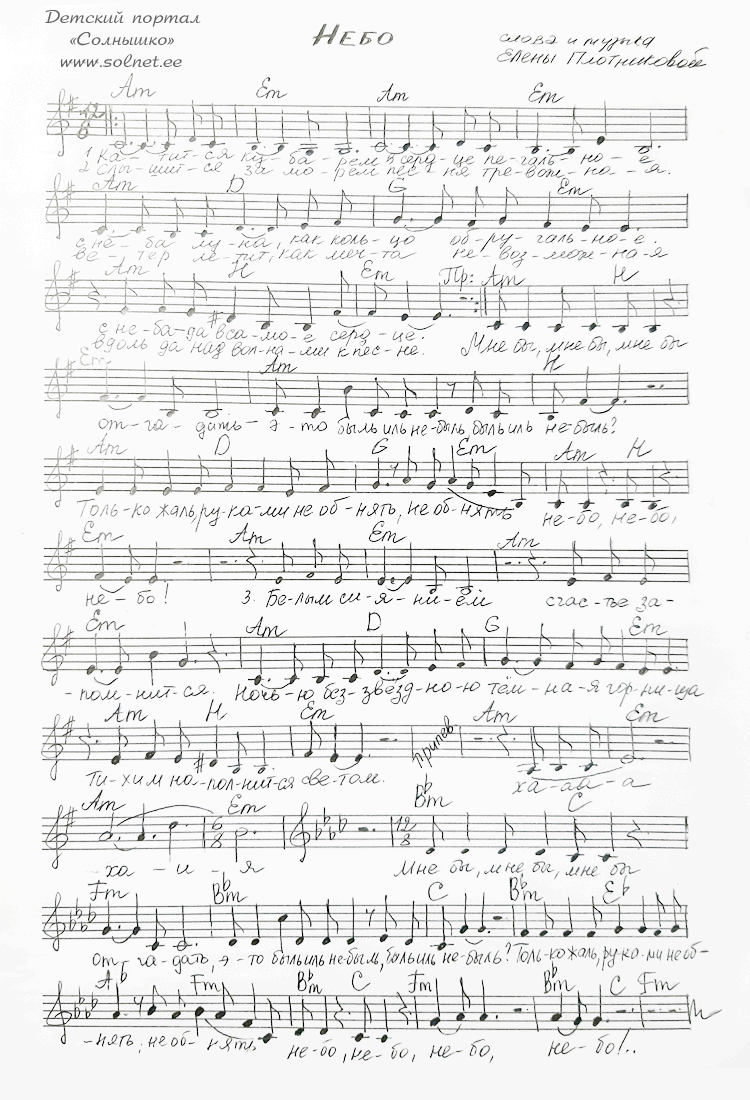 Детский портал
«Солнышко»
www.solnet.ee
Небо
слова и музыка
Елены Плотниковой
Am Em Am Em
12/8
1 Ка-тит-ся ку-ба-рем в серд-це пе-чаль-но-е
2 Слы-шит-ся за мо-рем пес-ня тре-вож-на-я.
Am D G Em
с не-ба лу-на, как коль-цо об-ру-чаль-но-е.
ве-тер ле-тит, как меч-та не-воз-мож-на-я
Am H Em Пр: Am H
с не-ба-да в са-мо-е серд-це. Мне бы, мне бы, мне бы
вдоль да над вол-на-ми к пес-не.
Em Am H
от-га-дать - э-то быль иль не-быль, быль иль не-быль?
Am D G Em Am H
Толь-ко жаль, ру-ка-ми не об-нять, не об-нять не-бо, не-бо,
Em Am Em Am
не-бо! 3. Бе-лым си-я-ни-ем счас-тье за-
Em Am D G Em
-пом-нит-ся. Ночь-ю без-звёзд-но-ю тём-на-я гор-ни-ца
Am H Em Припев. Am Em
Ти-хим на-пол-нит-ся све-том. ха-а-и-а
Am Em B♭m C
6/8 12/8
ха-и-я Мне бы, мне бы, мне бы
Fm B♭m C B♭m E♭
от-га-дать, э-то быль иль не-быль, быль иль не-быль? Толь-ко жаль, ру-ка-ми не об-
A♭ Fm B♭m C Fm B♭m C Fm
-нять, не об-нять не-бо, не-бо, не-бо, не-бо!..